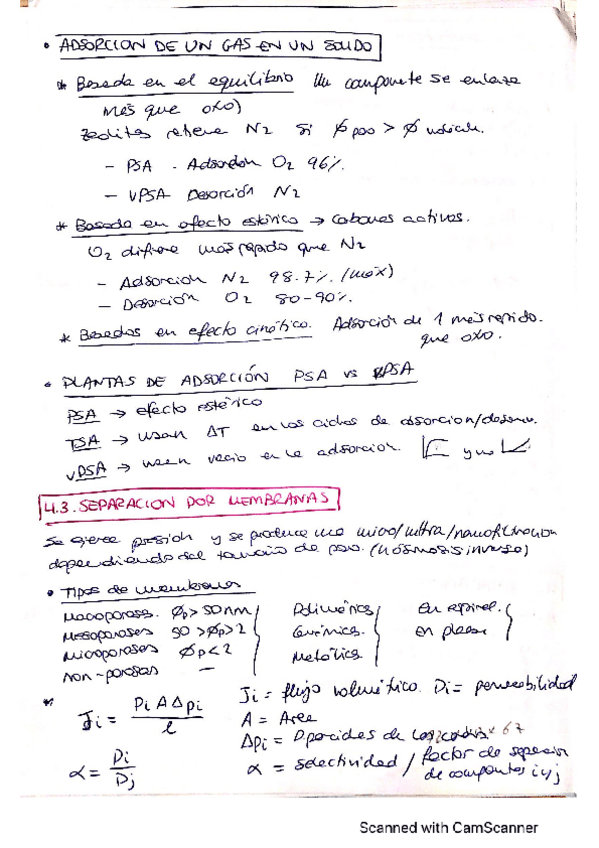 • ADSORCION DE UN GAS EN UN SOLIDO
* Basada en el equilibrio Un componete se enlaza
más que otro)
Zeolitas retiene N2 si φ poro > φ
- PSA - Adsorción O2 96%.
- VPSA Desorción N2
* Basada en efecto estérico → carbones activos.
O2 difiere más rápido que N2
- Adsorción N2 98.7%. (max)
- Desorción O2 80-90%.
* Basados en efecto cinético. Adsorción de 1 más rápido.
que otro.
• PLANTAS DE ADSORCIÓN PSA vs VPSA
PSA → efecto estérico
TSA → usan ΔT en los ciclos de absorcion/
VPSA → usen vacio en la adsorcion. y no
4.3. SEPARACION POR MEMBRANAS
Se ejerce presión y se produce una micro/ultra/nanofiltracion
dependiendo del tamaño de poro. (u ósmosis inversa)
• Tipos de membrana
Macroporosas. φp > 50 nm Poliméricas En espiral.
Mesoporosas 50 > φp > 2 Cerámicas. en placas
Microporosas φp < 2 Metálica
Non-porosas —
* Ji = Pi A Δpi / l Ji = flujo volumétrico. Pi = permeabilidad
A = Area
Δpi = P parciales de
α = Pi / Pj α = selectividad / factor de separación
de compontes i y j
Scanned with CamScanner